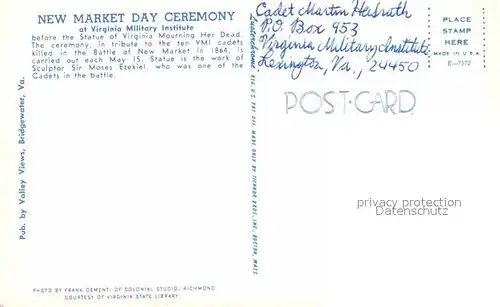 NEW MARKET DAY CEREMONY
at Virginia Military Institute
before the Statue of Virginia Mourning Her Dead.
The ceremony, in tribute to the ten VMI cadets
killed in the Battle of New Market in 1864, is
carried out each May 15. Statue is the work of
Sculptor Sir Moses Ezekiel, who was one of the
Cadets in the battle.
Pub. by Valley Views, Bridgewater, Va.
PHOTO BY FRANK DEMENT, OF COLONIAL STUDIO, RICHMOND
COURTESY OF VIRGINIA STATE LIBRARY
REG. U.S. PAT. OFF. MADE ONLY BY TICHNOR BROS., INC., BOSTON, MASS.
Cadet Martin
P.O. Box 953
Virginia Military Institute
Lexington, Va., 24450
PLACE
STAMP
HERE
MADE IN U.S.A.
K-7372
POST-CARD
privacy protection
Datenschutz